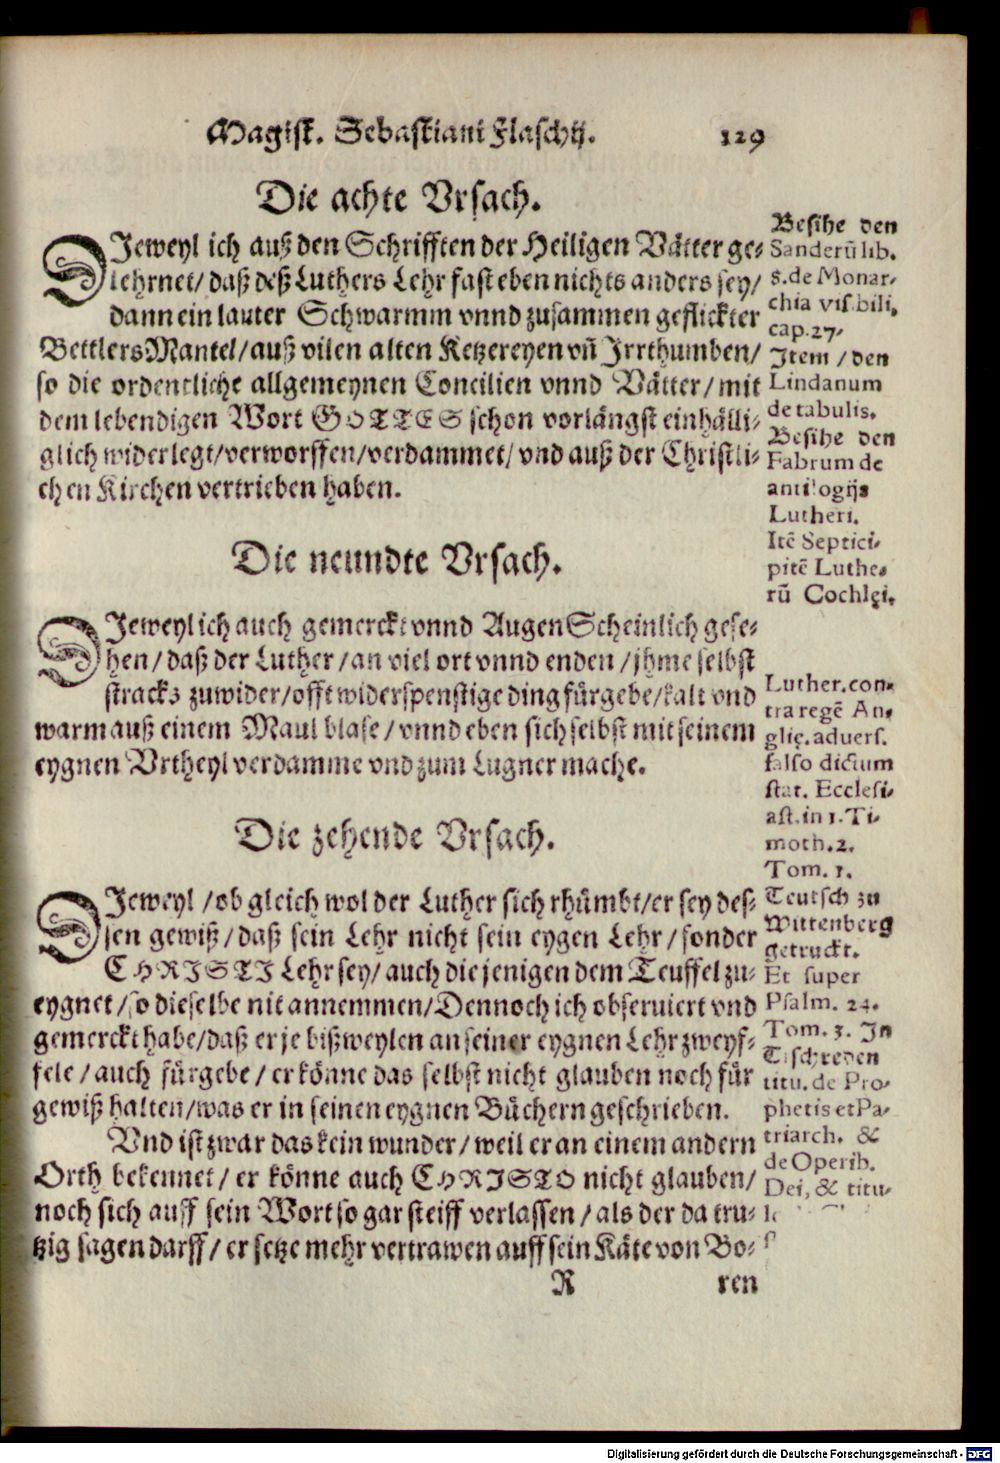 Magist. Sebastiani Flaschij. 129
Die achte Vrsach.
DJeweyl ich auß den Schrifften der Heiligen Vätter ge-
lehrnet/ daß deß Luthers Lehr fast eben nichts anders sey/
dann ein lauter Schwarmm vnnd zusammen geflickter
Bettlers Mantel/ auß vilen alten Ketzereyen vñ Jrrthumben/
so die ordentliche allgemeynen Concilien vnnd Vätter/ mit
dem lebendigen Wort GOTTES schon vorlängst einhälli-
glich widerlegt/ verworffen/ verdammet/ vnd auß der Christli-
chen Kirchen vertrieben haben.
Besihe den
Sanderũ lib.
8. de Monar-
chia visibili,
cap. 27.
Item / den
Lindanum
de tabulis.
Besihe den
Fabrum de
antilogijs
Lutheri.
Itẽ Septici-
pitẽ Luthe-
rũ Cochlęi.
Die neundte Vrsach.
DJeweyl ich auch gemerckt vnnd Augen Scheinlich gese-
hen/ daß der Luther / an viel ort vnnd enden / jhme selbst
stracks zuwider/ offt widerspenstige ding fürgebe/ kalt vnd
warm auß einem Maul blase / vnnd eben sich selbst mit seinem
eygnen Vrtheyl verdamme vnd zum Lugner mache.
Luther. con-
tra regẽ An-
glię. aduers.
falso dictum
stat. Ecclesi-
ast. in 1. Ti-
moth. 2.
Tom. 1.
Teutsch zu
Wittenberg
getruckt.
Et super
Psalm. 24.
Tom. 3. In
Tischreden
titu. de Pro-
phetis et Pa-
triarch. &
de Operib.
Dei, & titu-
Die zehende Vrsach.
DJeweyl / ob gleich wol der Luther sich rhümbt/ er sey des-
sen gewiß / daß sein Lehr nicht sein eygen Lehr / sonder
CHRISTI Lehr sey/ auch die jenigen dem Teuffel zu-
eygnet / so dieselbe nit annemmen/ Dennoch ich obseruiert vnd
gemerckt habe/ daß er je bißweylen an seiner eygnen Lehr zweyf-
fele / auch fürgebe / er könne das selbst nicht glauben noch für
gewiß halten/ was er in seinen eygnen Büchern geschrieben.
Vnd ist zwar das kein wunder / weil er an einem andern
Orth bekennet / er könne auch CHRISTO nicht glauben/
noch sich auff sein Wort so gar steiff verlassen / als der da tru-
tzig sagen darff / er setze mehr vertrawen auff sein Käte von Bo-
R ren
Digitalisierung gefördert durch die Deutsche Forschungsgemeinschaft - DFG